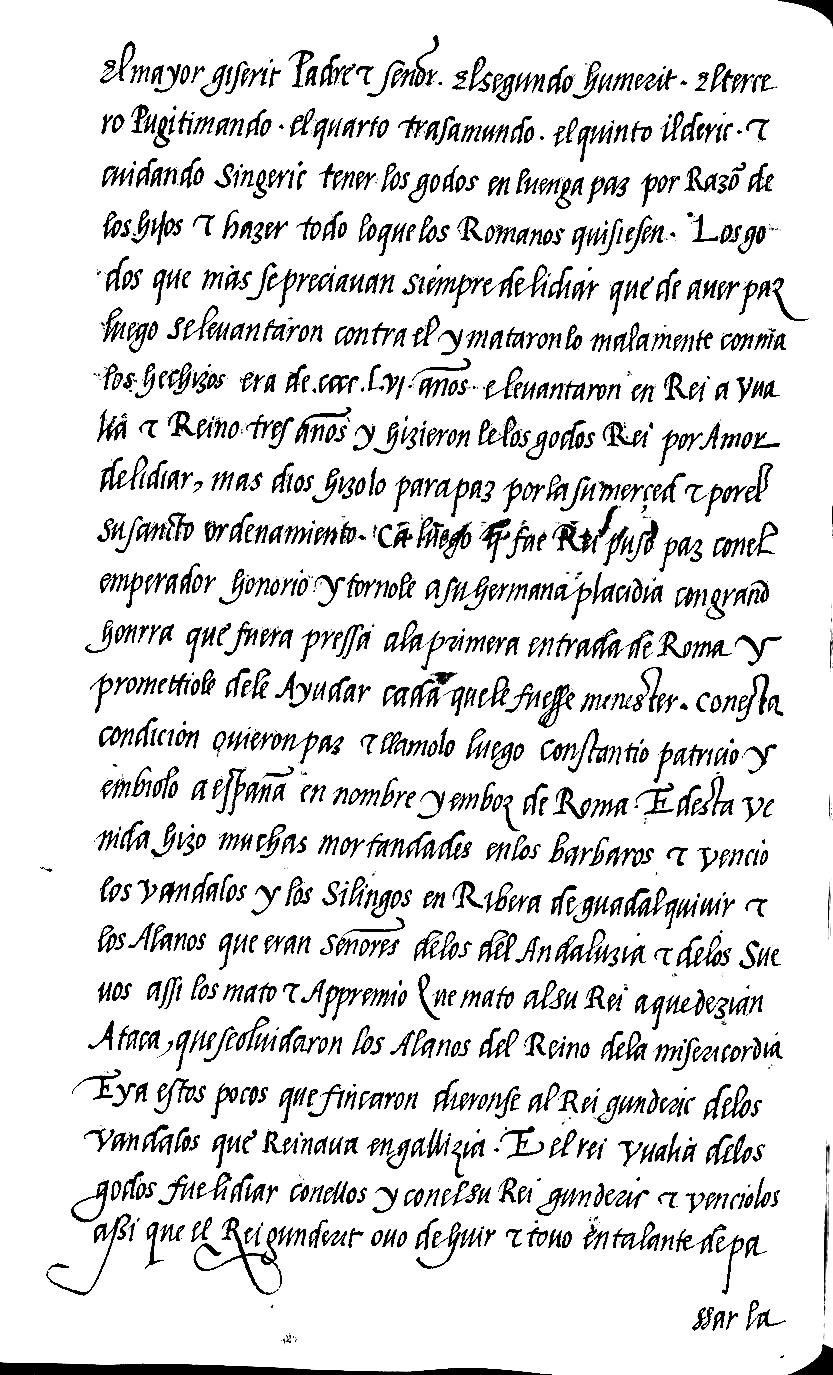 El mayor giserit Padre τ señor. El segundo humerit. El terce
ro Pugitimando. el quarto trasamundo. el quinto ilderic. τ
cuidando Singeric tener los godos en luenga paz por Razõ de
los hijos τ hazer todo lo que los Romanos quisiesen. Los go
dos que mas se preciavan siempre de lidiar que de aver paz
luego se levantaron contra el y mataron lo malamente con ma
los hechizos era de .cccc.Lvj. años e levantaron en Rei a Vua
lia τ Reino tres años y hizieron le los godos Rei por Amor
de lidiar, mas dios hizolo para paz por la su merçed τ por el
su sancto ordenamiento. Ca luego q̃ fue Rei puso paz con el
emperador honorio y tornole a su hermana placidia con grand
honrra que fuera pressa a la primera entrada de Roma y
promettiole de le Ayudar cada que le fuesse menester. Con esta
condicion ovieron paz τ llamolo luego Constantio patricio y
embiolo a españa en nombre y emboz de Roma. E desta ve
nida hizo muchas mortandades en los barbaros τ vencio
los vandalos y los Silingos en Ribera de guadalquivir τ
los Alanos que eran señores de los del Andaluzia τ de los Sue
vos assi los mato τ Appremio Que mato al su Rei a que dezian
Ataca, que se olvidaron los Alanos del Reino de la misericordia
E ya estos pocos que fincaron dieronse al Rei gunderic de los
vandalos que Reinava en gallizia. E el rei vualia de los
godos fue lidiar con ellos y con el su Rei gunderic τ venciolos
assi que el Rei gunderic ovo de huir τ tovo en talante de pa
ssar la